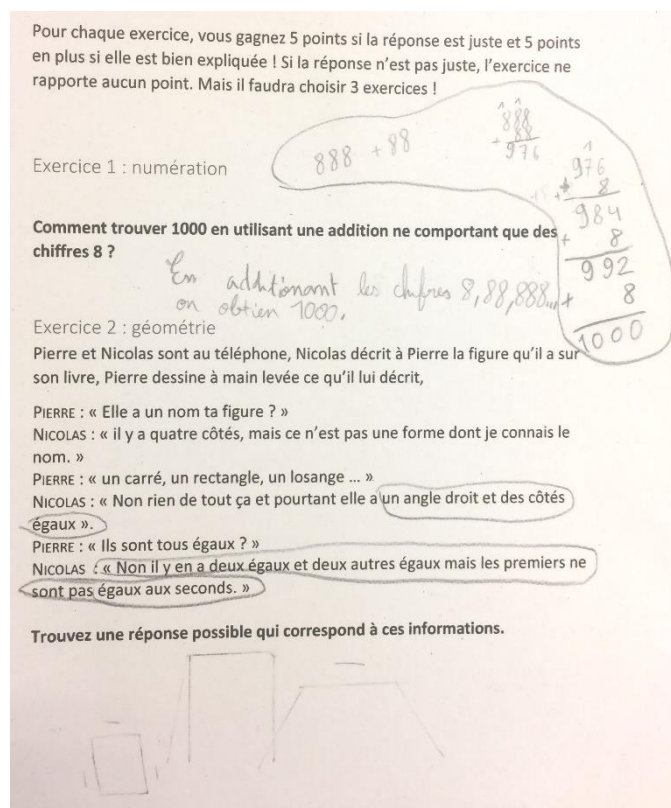 Pour chaque exercice, vous gagnez 5 points si la réponse est juste et 5 points
en plus si elle est bien expliquée ! Si la réponse n'est pas juste, l'exercice ne
rapporte aucun point. Mais il faudra choisir 3 exercices !
888 + 88
1 1
888
+ 88
976
1
976
+ 8
984
+ 8
992
+ 8
1000
Exercice 1 : numération
Comment trouver 1000 en utilisant une addition ne comportant que des
chiffres 8 ?
En additionant les chufres 8,88,888...
on obtien 1000.
Exercice 2 : géométrie
Pierre et Nicolas sont au téléphone, Nicolas décrit à Pierre la figure qu'il a sur
son livre, Pierre dessine à main levée ce qu'il lui décrit,
PIERRE : « Elle a un nom ta figure ? »
NICOLAS : « il y a quatre côtés, mais ce n'est pas une forme dont je connais le
nom. »
PIERRE : « un carré, un rectangle, un losange ... »
NICOLAS : « Non rien de tout ça et pourtant elle a un angle droit et des côtés
égaux ».
PIERRE : « Ils sont tous égaux ? »
NICOLAS : « Non il y en a deux égaux et deux autres égaux mais les premiers ne
sont pas égaux aux seconds. »
Trouvez une réponse possible qui correspond à ces informations.